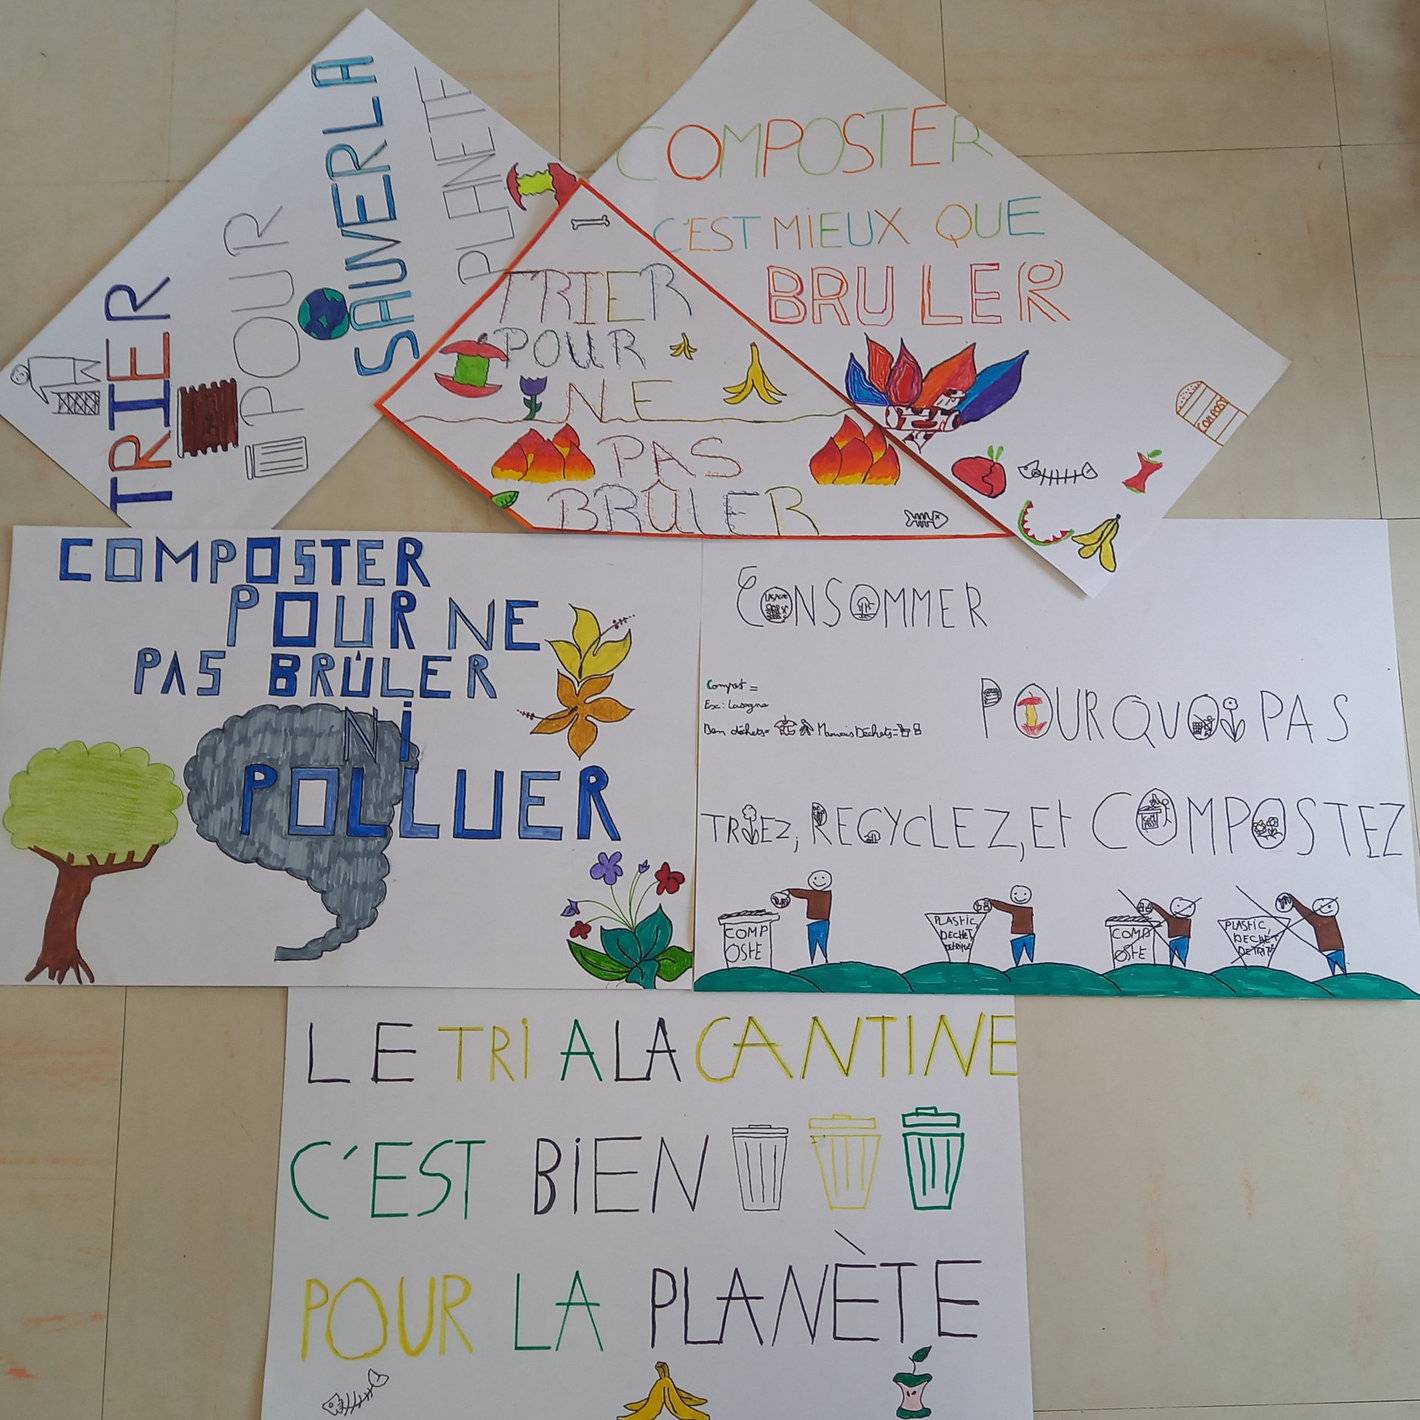 TRIER
POUR
SAUVER LA
PLANETE
COMPOSTER
C'EST MIEUX QUE
BRULER
COMPOST
TRIER
POUR
NE
PAS
BRÛLER
COMPOSTER
POUR NE
PAS BRÛLER
Ni
POLLUER
CONSOMMER
Compost =
Ex: Lasagne
Bon déchets=
Mauvais Déchets=
POURQUOi PAS
TRiEZ, RECYCLEZ, Et COMPOSTEZ
COMP
OSTE
PLASTIC,
DECHET
DETRITE
COMP
OSTE
PLASTIC,
DECHET
DETRITE
LE TRi A LA CANTINE
C'EST BiEN
POUR LA PLANÈTE